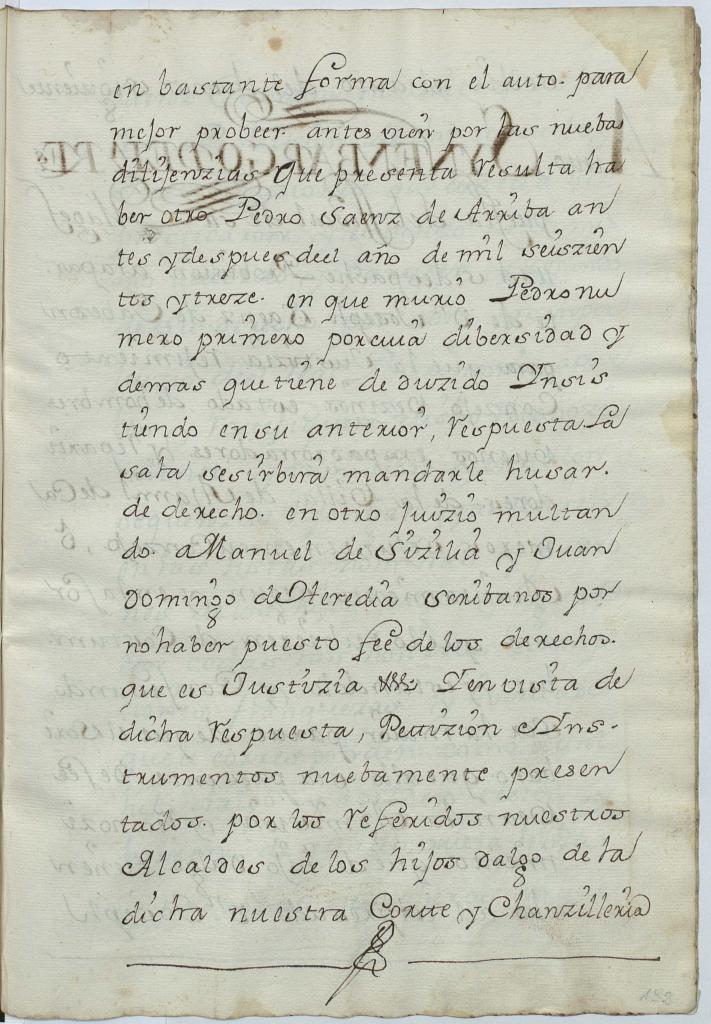 en bastante forma con el auto. para
mejor probeer. antes vien por las nuebas
dilijenzias que presenta resulta ha
ber otro Pedro Saenz de Arriba an
tes y despues deel año de mil seiszien
tos y treze. en que murio Pedro nu
mero primero por cuia dibersidad y
demas que tiene deduzido Ynsis
tiendo en su anterior, respuesta La
sala sesirbira mandarle husar.
de derecho. en otro juizio multan
do. a Manuel de Sizilia y Juan
Domingo de Heredia scribanos por
no haber puesto fee de los derechos.
que es Justizia Y en vista de
dicha respuesta, Petizion e Yns-
trumentos nuebamente presen
tados. por los referidos nuestros
Alcaldes de los hijos dalgo de la
dicha nuestra Corte y Chanzilleria